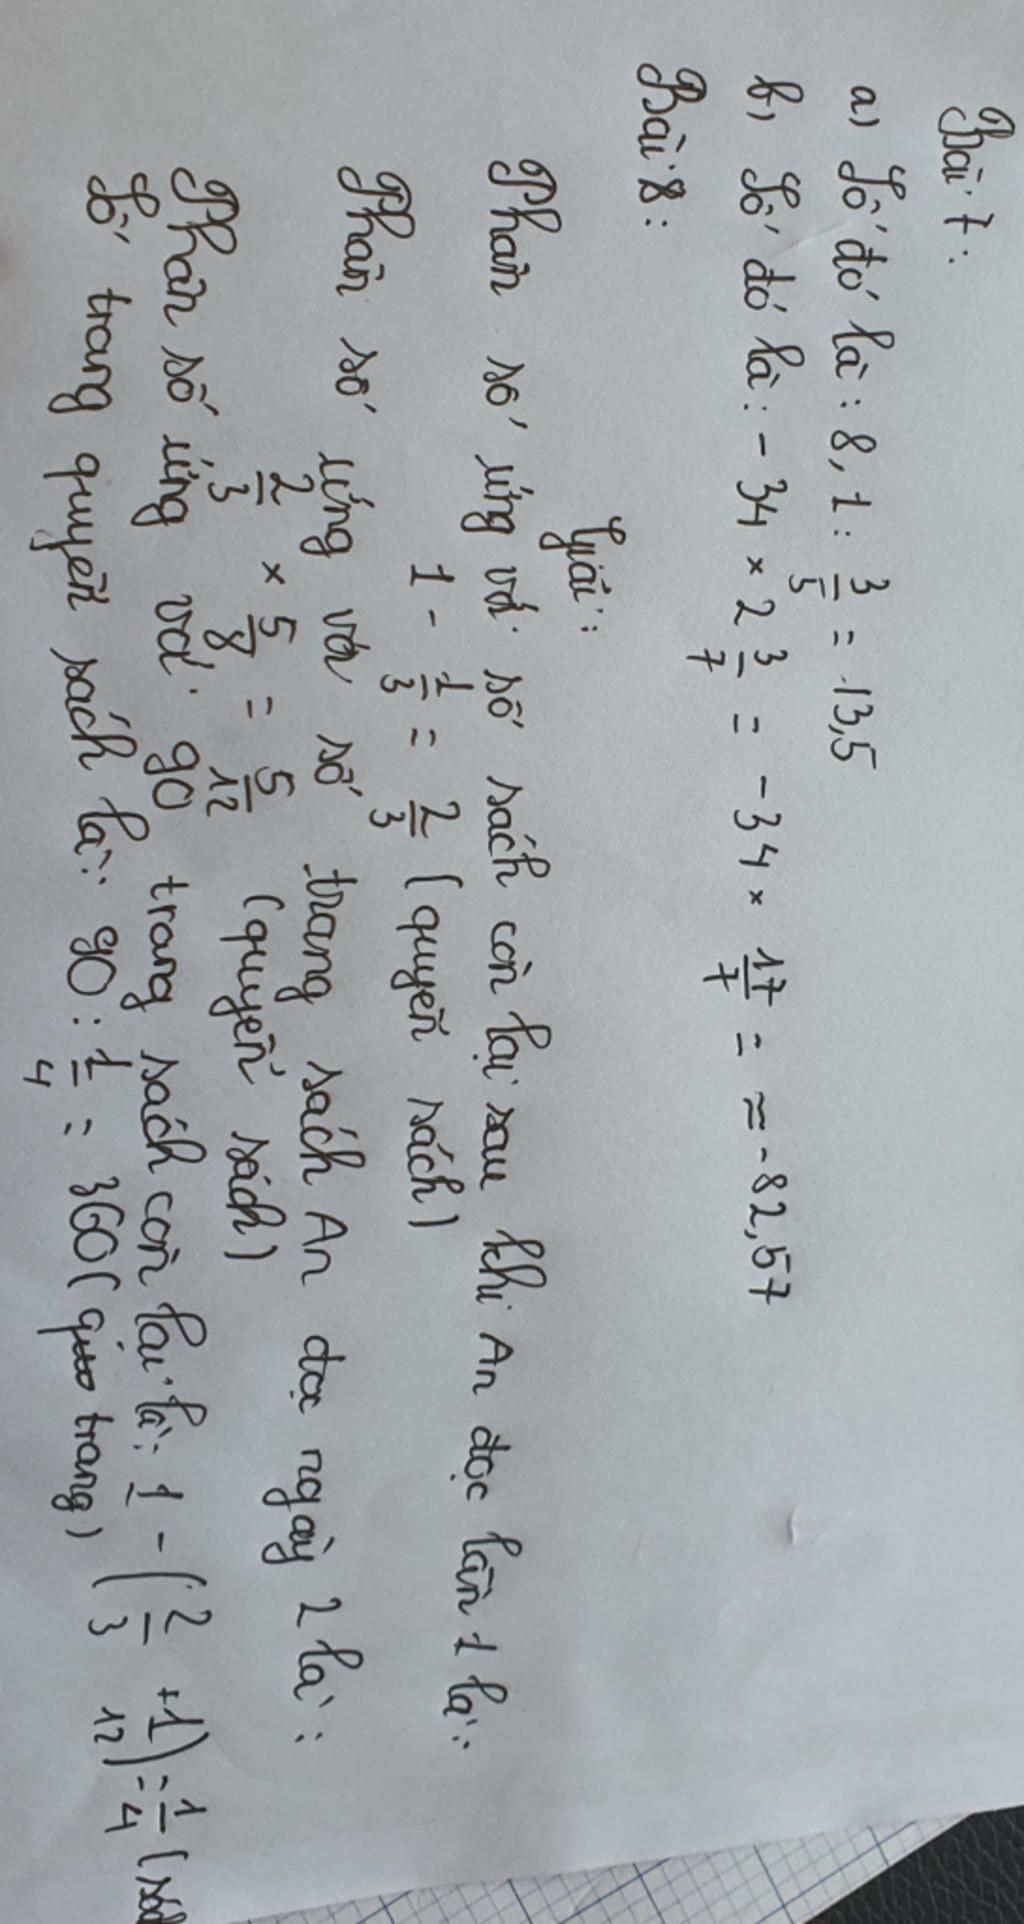 Bài 7:
a) Số đó là: 8,1 : 3/5 = 13,5
b, Số đó là: - 34 × 2 3/7 = - 34 × 17/7 = ≈ - 82,57
Bài 8:
Giải:
Phân số ứng với số sách còn lại sau khi An đọc lần 1 là:
1 - 1/3 = 2/3 (quyển sách)
Phân số ứng với số trang sách An đọc ngày 2 là:
2/3 × 5/8 = 5/12 (quyển sách)
Phân số ứng với 90 trang sách còn lại là: 1 - (2/3 + 1/12) = 1/4 (
Số trang quyển sách là: 90 : 1/4 = 360 ( trang)